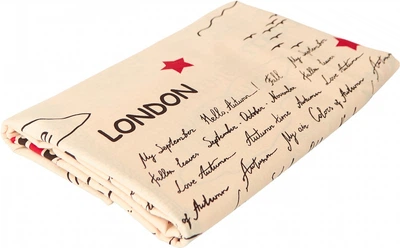 LONDON
My September
Fallen Leaves
Love Autumn
Hello, Autumn! Fall
My September Fallen Leaves September October. November
Fallen Leaves Love Autumn Autumn time Autumn
Love Autumn Autumn My Colors of Autumn
of Autumn